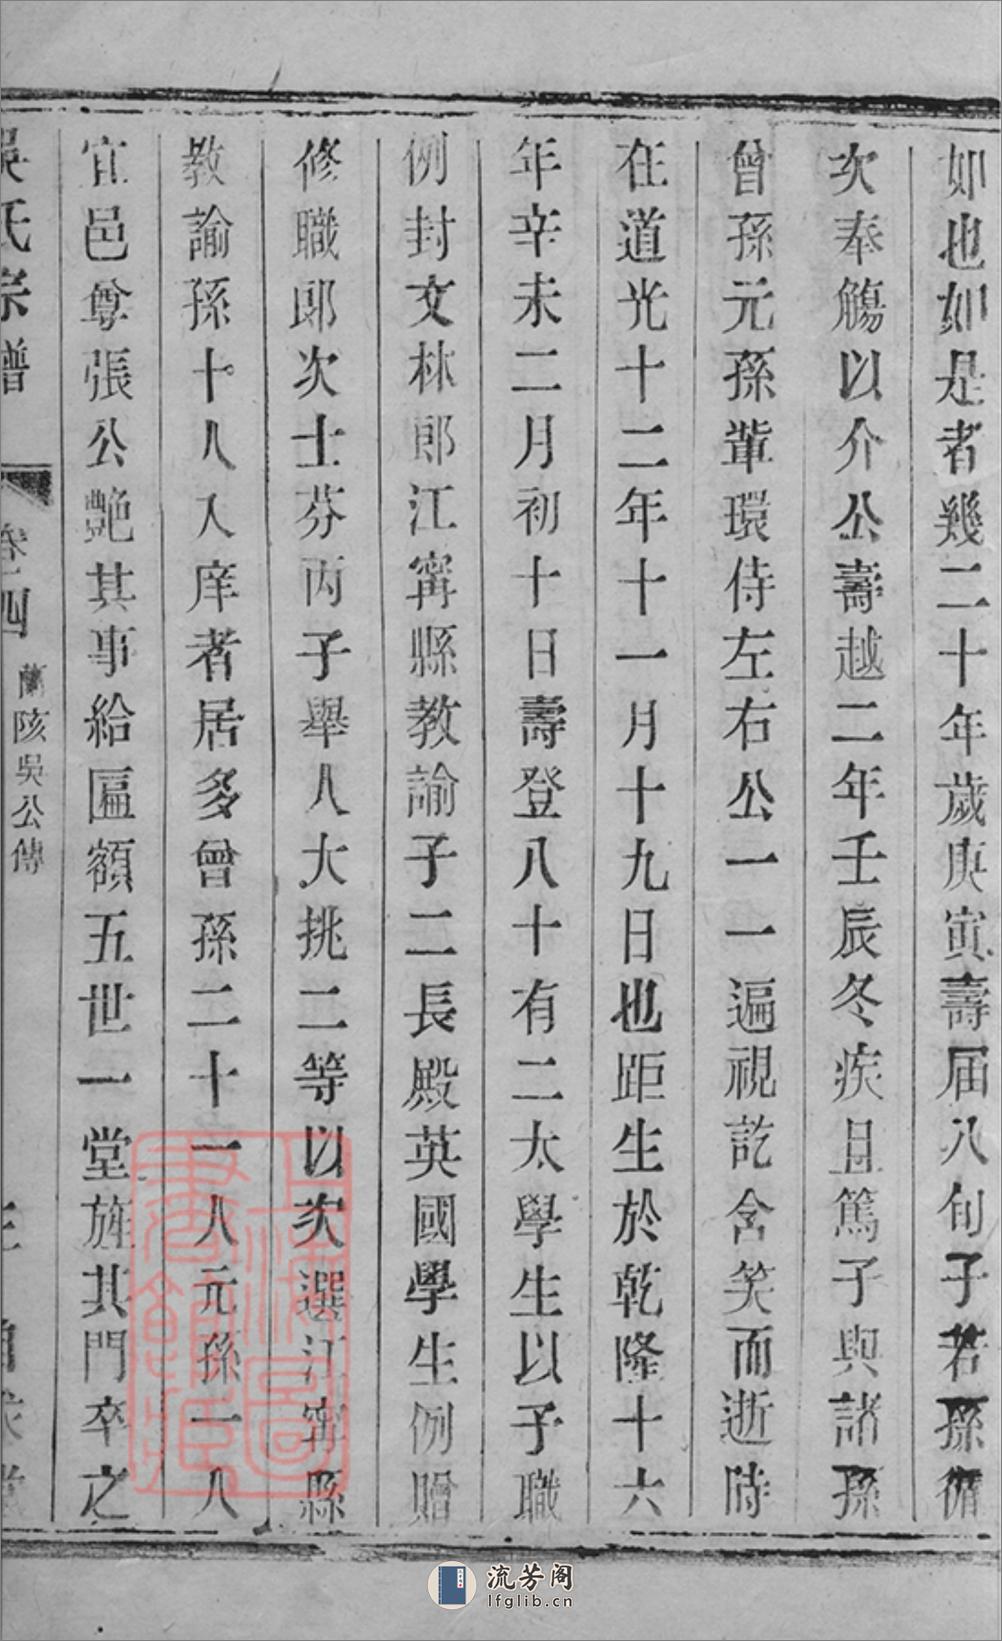 如也如是者幾二十年歲庚寅壽届八旬子若孫循
次奉觴以介公壽越二年壬辰冬疾且篤子與諸孫
曾孫元孫軰環侍左右公一一遍視訖含笑而逝時
在道光十二年十一月十九日也距生於乾隆十六
年辛未二月初十日壽登八十有二太學生以子職
例封文林郎江甯縣教諭子二長殿英國學生例贈
修職郎次士芬丙子舉人大挑二等以次選江甯縣
教諭孫十人入庠者居多曾孫二十一人元孫一人
宜邑尊張公艶其事給匾額五世一堂旌其門卒之
吳氏宗譜
卷四
蘭陔吳公傳
上海圖書館藏
流芳阁
lfglib.cn